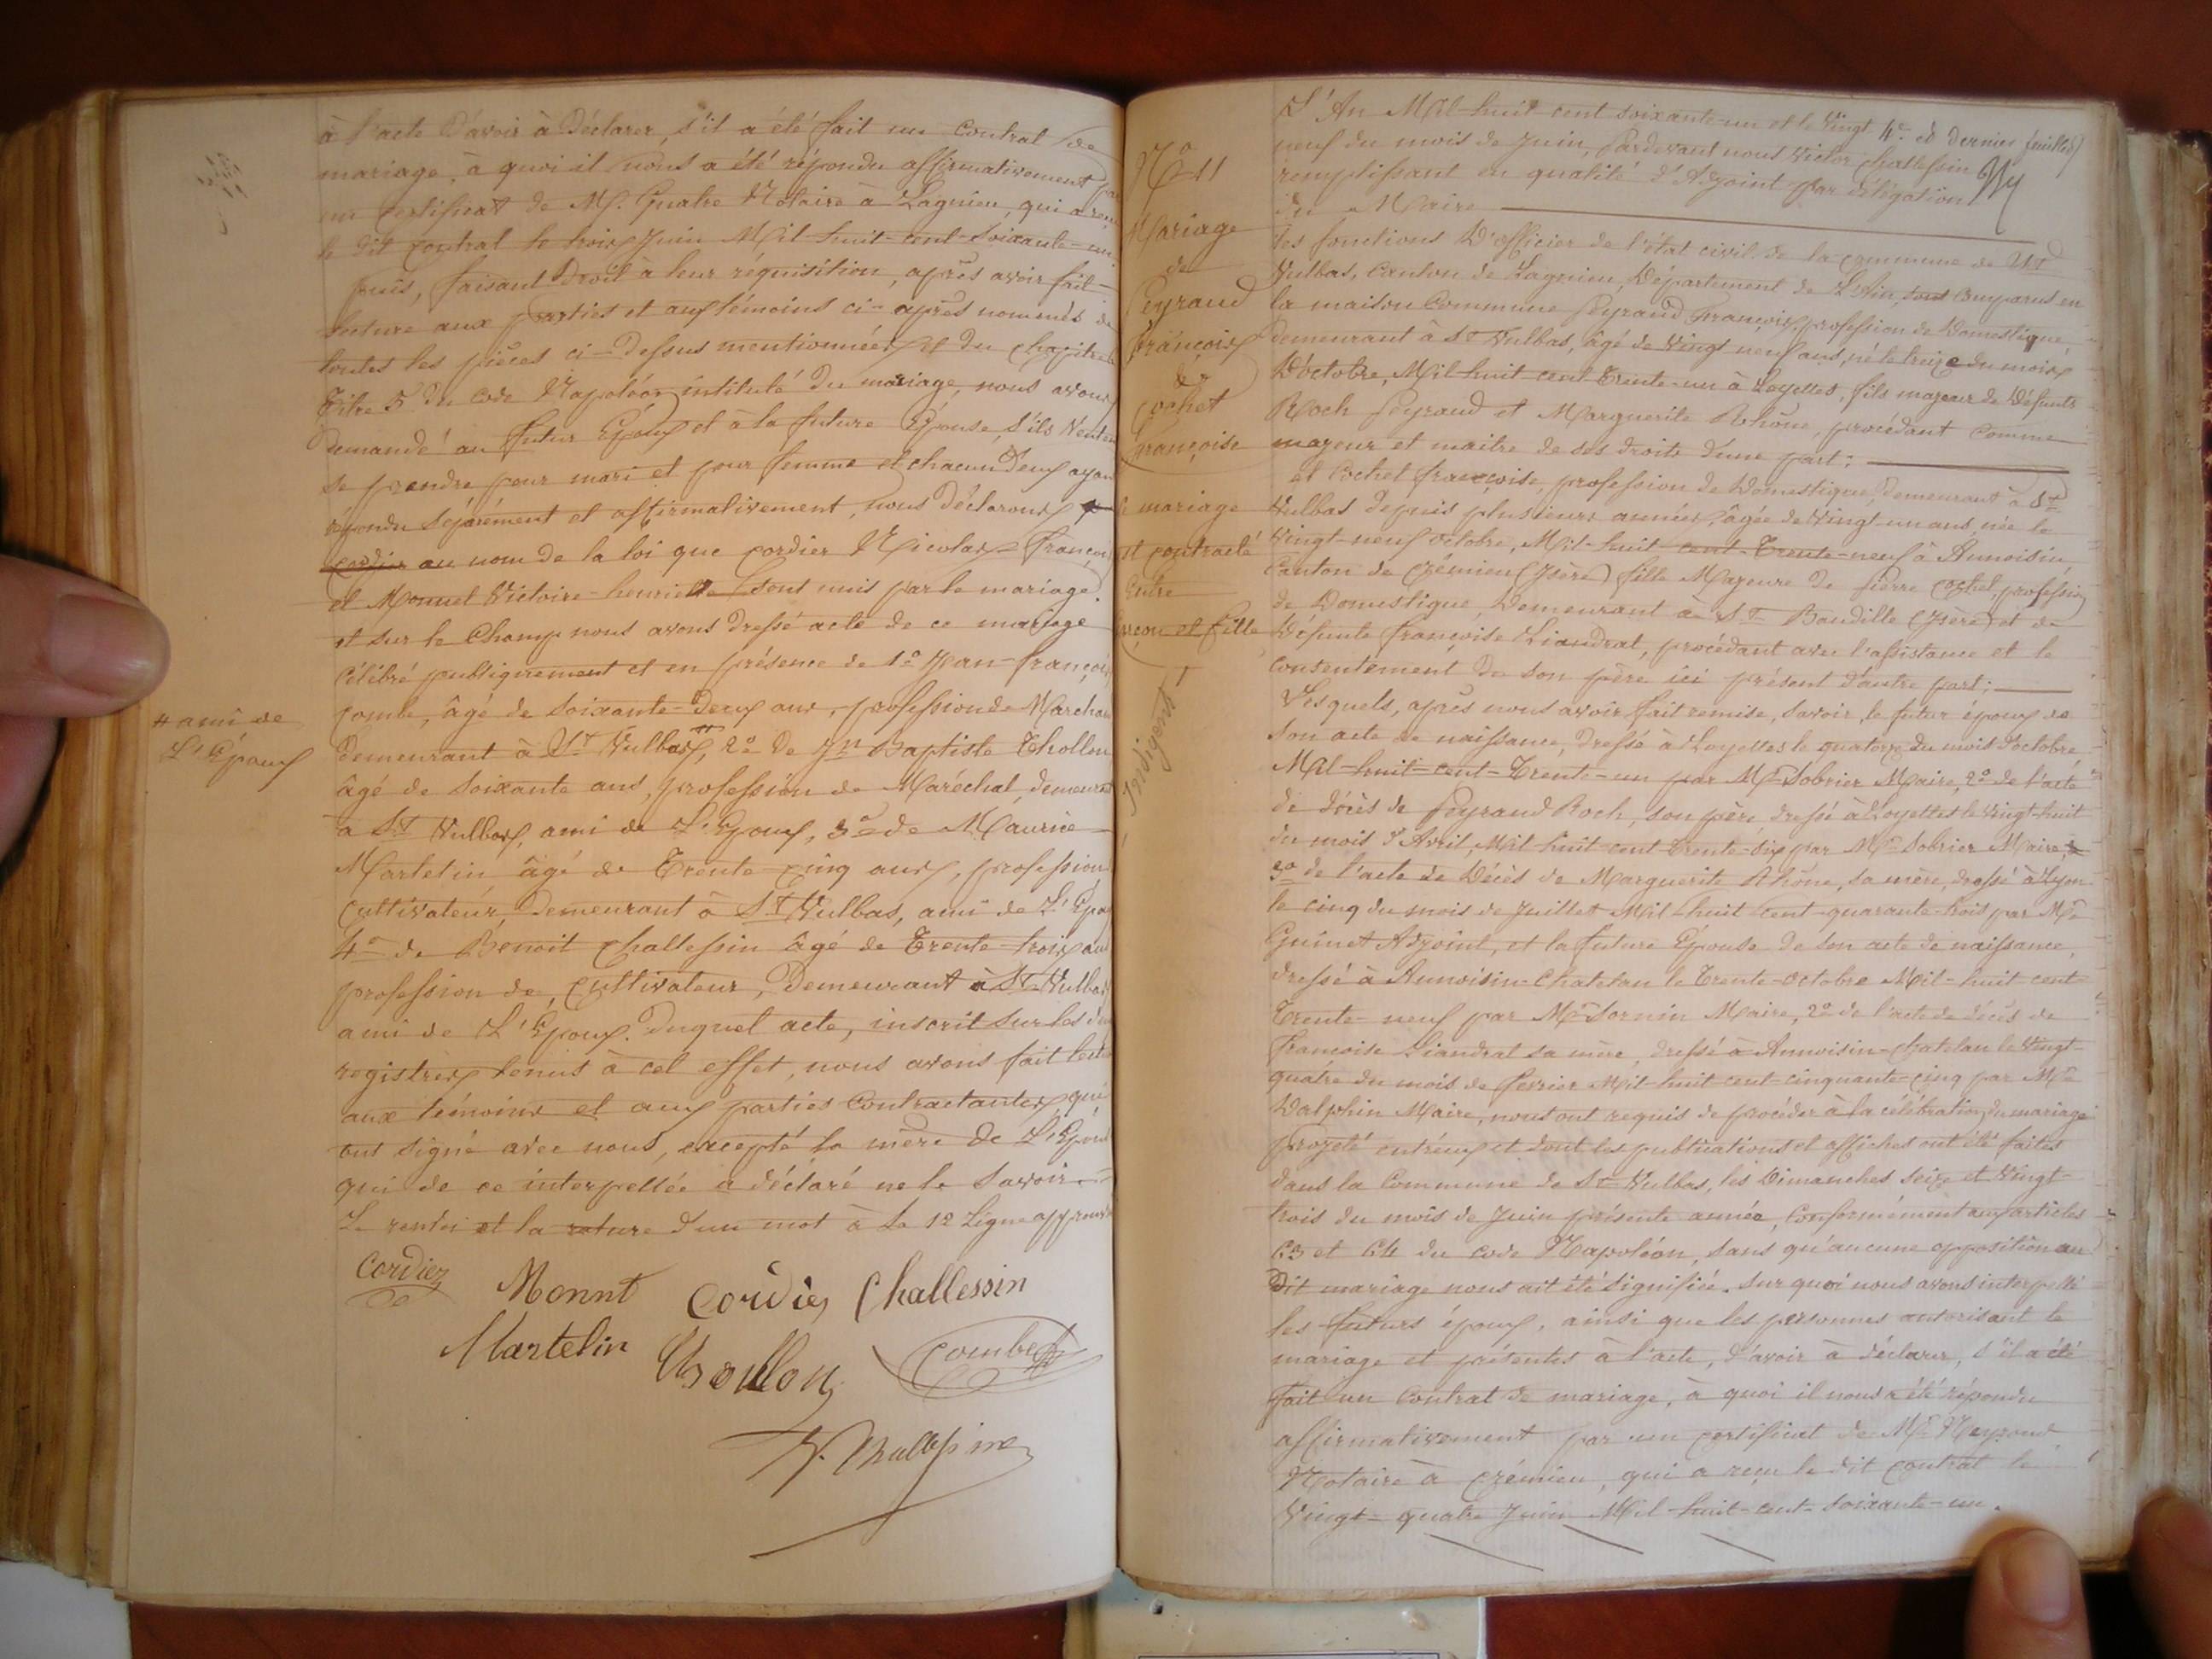 à l'acte d'avoir à déclarer, s'il a été fait un contrat de
mariage, à quoi il nous a été répondu affirmativement par
un certificat de Me. Quatre Notaire à Lagnieu, qui a reçu
le dit contrat le trois Juin Mil-huit-cent-soixante-un.
puis, faisant droit à leur réquisition, après avoir fait
lecture aux parties et aux témoins ci-après nommés de
toutes les pièces ci-dessus mentionnées et du chapitre
Titre 5 du code Napoléon intitulé du mariage, nous avons
demandé au futur Epoux et à la future Epouse, s'ils veulent
se prendre pour mari et pour femme et chacun d'eux ayant
répondu séparément et affirmativement, nous déclarons
cordier au nom de la loi que cordier Nicolas françois
et Monnet Victoire-henriette sont unis par le mariage.
et sur le Champ nous avons dressé acte de ce mariage
célébré publiquement et en présence de 1o Jean-françois
Combe, âgé de soixante-deux ans, profession de Marchand
# ami de
L'Epoux
demeurant à St Vulbas, # 2o de Jn Baptiste Thollon
âgé de soixante ans, profession de Maréchal, demeurant
à St Vulbas, ami de L'Epoux, 3o de Maurice
Martelin âgé de Trente cinq ans, profession
Cultivateur, demeurant à St Vulbas, ami de L'Epoux
4o de Benoit Challessin âgé de Trente-trois ans
profession de Cultivateur, demeurant à St Vulbas
ami de L'Epoux. Duquel acte, inscrit sur les deux
registres tenus à cet effet, nous avons fait lecture
aux témoins et aux parties Contractantes qui
ont signé avec nous, excepté la mère de L'Epoux
qui de ce interpellée a déclaré ne le savoir.
Le renvoi et la rature d'un mot à la 12 Ligne approuvés
Cordier Monnet Cordier Challessin
Martelin Thollon Combe
V. Challessin
No 11
Mariage
de
Peyraud
françois
&
Cochet
françoise
le mariage
est contracté
Entre
garçon et fille
Indigents
4e et dernier feuillet
L'An Mil-huit cent soixante-un et le Vingt
neuf du mois de Juin, Pardevant nous Victor Challessin
remplissant en qualité d'Adjoint par délégation
du Maire
les fonctions d'officier de l'état civil de la commune de St
Vulbas, Canton de Lagnieu, Département de L'Ain, sont Comparus en
la maison Commune Peyraud François, profession de Domestique,
demeurant à St Vulbas, âgé de Vingt neuf ans, né le treize du mois
d'octobre, Mil-huit cent Trente-un à Loyettes, fils majeur de défunts
Roch Peyraud et Marguerite Rhône, procédant comme
majeur et maitre de ses droits d'une part;
et Cochet françoise, profession de Domestique, demeurant à St
Vulbas depuis plusieurs années, âgée de Vingt-un ans, née le
Vingt-neuf octobre, Mil-huit cent-Trente-neuf à Annoisin,
Canton de Crémieu (Isère) fille Majeure de Pierre Cochet, profession
de Domestique, Demeurant à St Baudille (Isère) et de
Défunte françoise Liandrat, procédant avec l'assistance et le
consentement de son père ici présent d'autre part;
Lesquels, après nous avoir fait remise, savoir, le futur époux de
son acte de naissance, dressé à Loyettes le quatorze du mois d'octobre
Mil-huit-cent-Trente-un par Mr Sobrier Maire, 2o de l'acte
de décès de Peyraud Roch, son père dressé à Loyettes le Vingt-huit
du mois d'Avril, Mil-huit-cent Trente-six par Mr Sobrier Maire,
3o de l'acte de Décès de Marguerite Rhône, sa mère, dressé à Lyon
le cinq du mois de Juillet Mil-huit cent-quarante-trois par Mr
Guinet Adjoint, et la future Epouse de son acte de naissance,
dressé à Annoisin-Chatelan le Trente-octobre Mil-huit-cent-
Trente-neuf par Mr Sornin Maire, 2o de l'acte de décès de
françoise Liandrat sa mère, dressé à Annoisin-Chatelan le Vingt-
quatre du mois de fevrier Mil-huit cent-cinquante-cinq par Mr
Dalphin Maire, nous ont requis de procéder à la célébration du mariage
projeté entr'eux et dont les publications et affiches ont été faites
dans la Commune de St Vulbas, les Dimanches seize et Vingt-
trois du mois de Juin présente année, Conformément aux articles
63 et 64 du code Napoléon, sans qu'aucune opposition au
dit mariage nous ait été signifiée. Sur quoi nous avons interpellé
les futurs époux, ainsi que les personnes autorisant le
mariage et présentes à l'acte, d'avoir à déclarer, s'il a été
fait un Contrat de mariage, à quoi il nous a été répondu
affirmativement par un certificat de Me Neyrond
Notaire à Crémieu, qui a reçu le dit contrat le
Vingt-quatre Juin Mil-huit-cent-soixante-un.